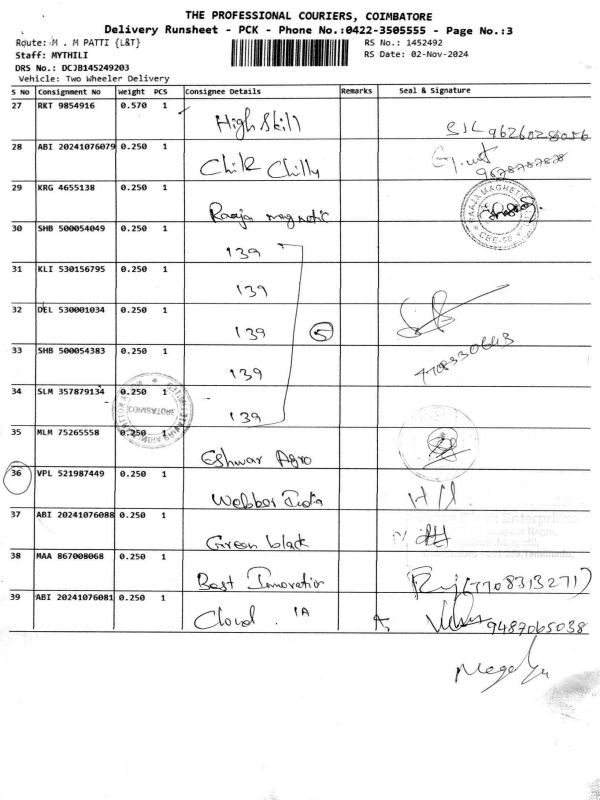 THE PROFESSIONAL COURIERS, COIMBATORE
Delivery Runsheet - PCK - Phone No.:0422-3505555 - Page No.:3
Route: M . M PATTI {L&T}
RS No.: 1452492
Staff: MYTHILI
RS Date: 02-Nov-2024
DRS No.: DCJB145249203
Vehicle: Two Wheeler Delivery
S No Consignment No Weight PCS Consignee Details Remarks Seal & Signature
27 RKT 9854916 0.570 1 High Skill
28 ABI 20241076079 0.250 1 Chilk Chilly
29 KRG 4655138 0.250 1 Raaja magnetic
30 SHB 500054049 0.250 1 139
31 KLI 530156795 0.250 1 139
32 DEL 530001034 0.250 1 139 5
33 SHB 500054383 0.250 1 139
34 SLM 357879134 0.250 1 139
35 MLM 75265558 0.250 1 Eshwar Agro
36 VPL 521987449 0.250 1 Webbor India
37 ABI 20241076088 0.250 1 Green black
38 MAA 867008068 0.250 1 Best Innovation (7708313271)
39 ABI 20241076081 0.250 1 Cloud . 1A 9487065038